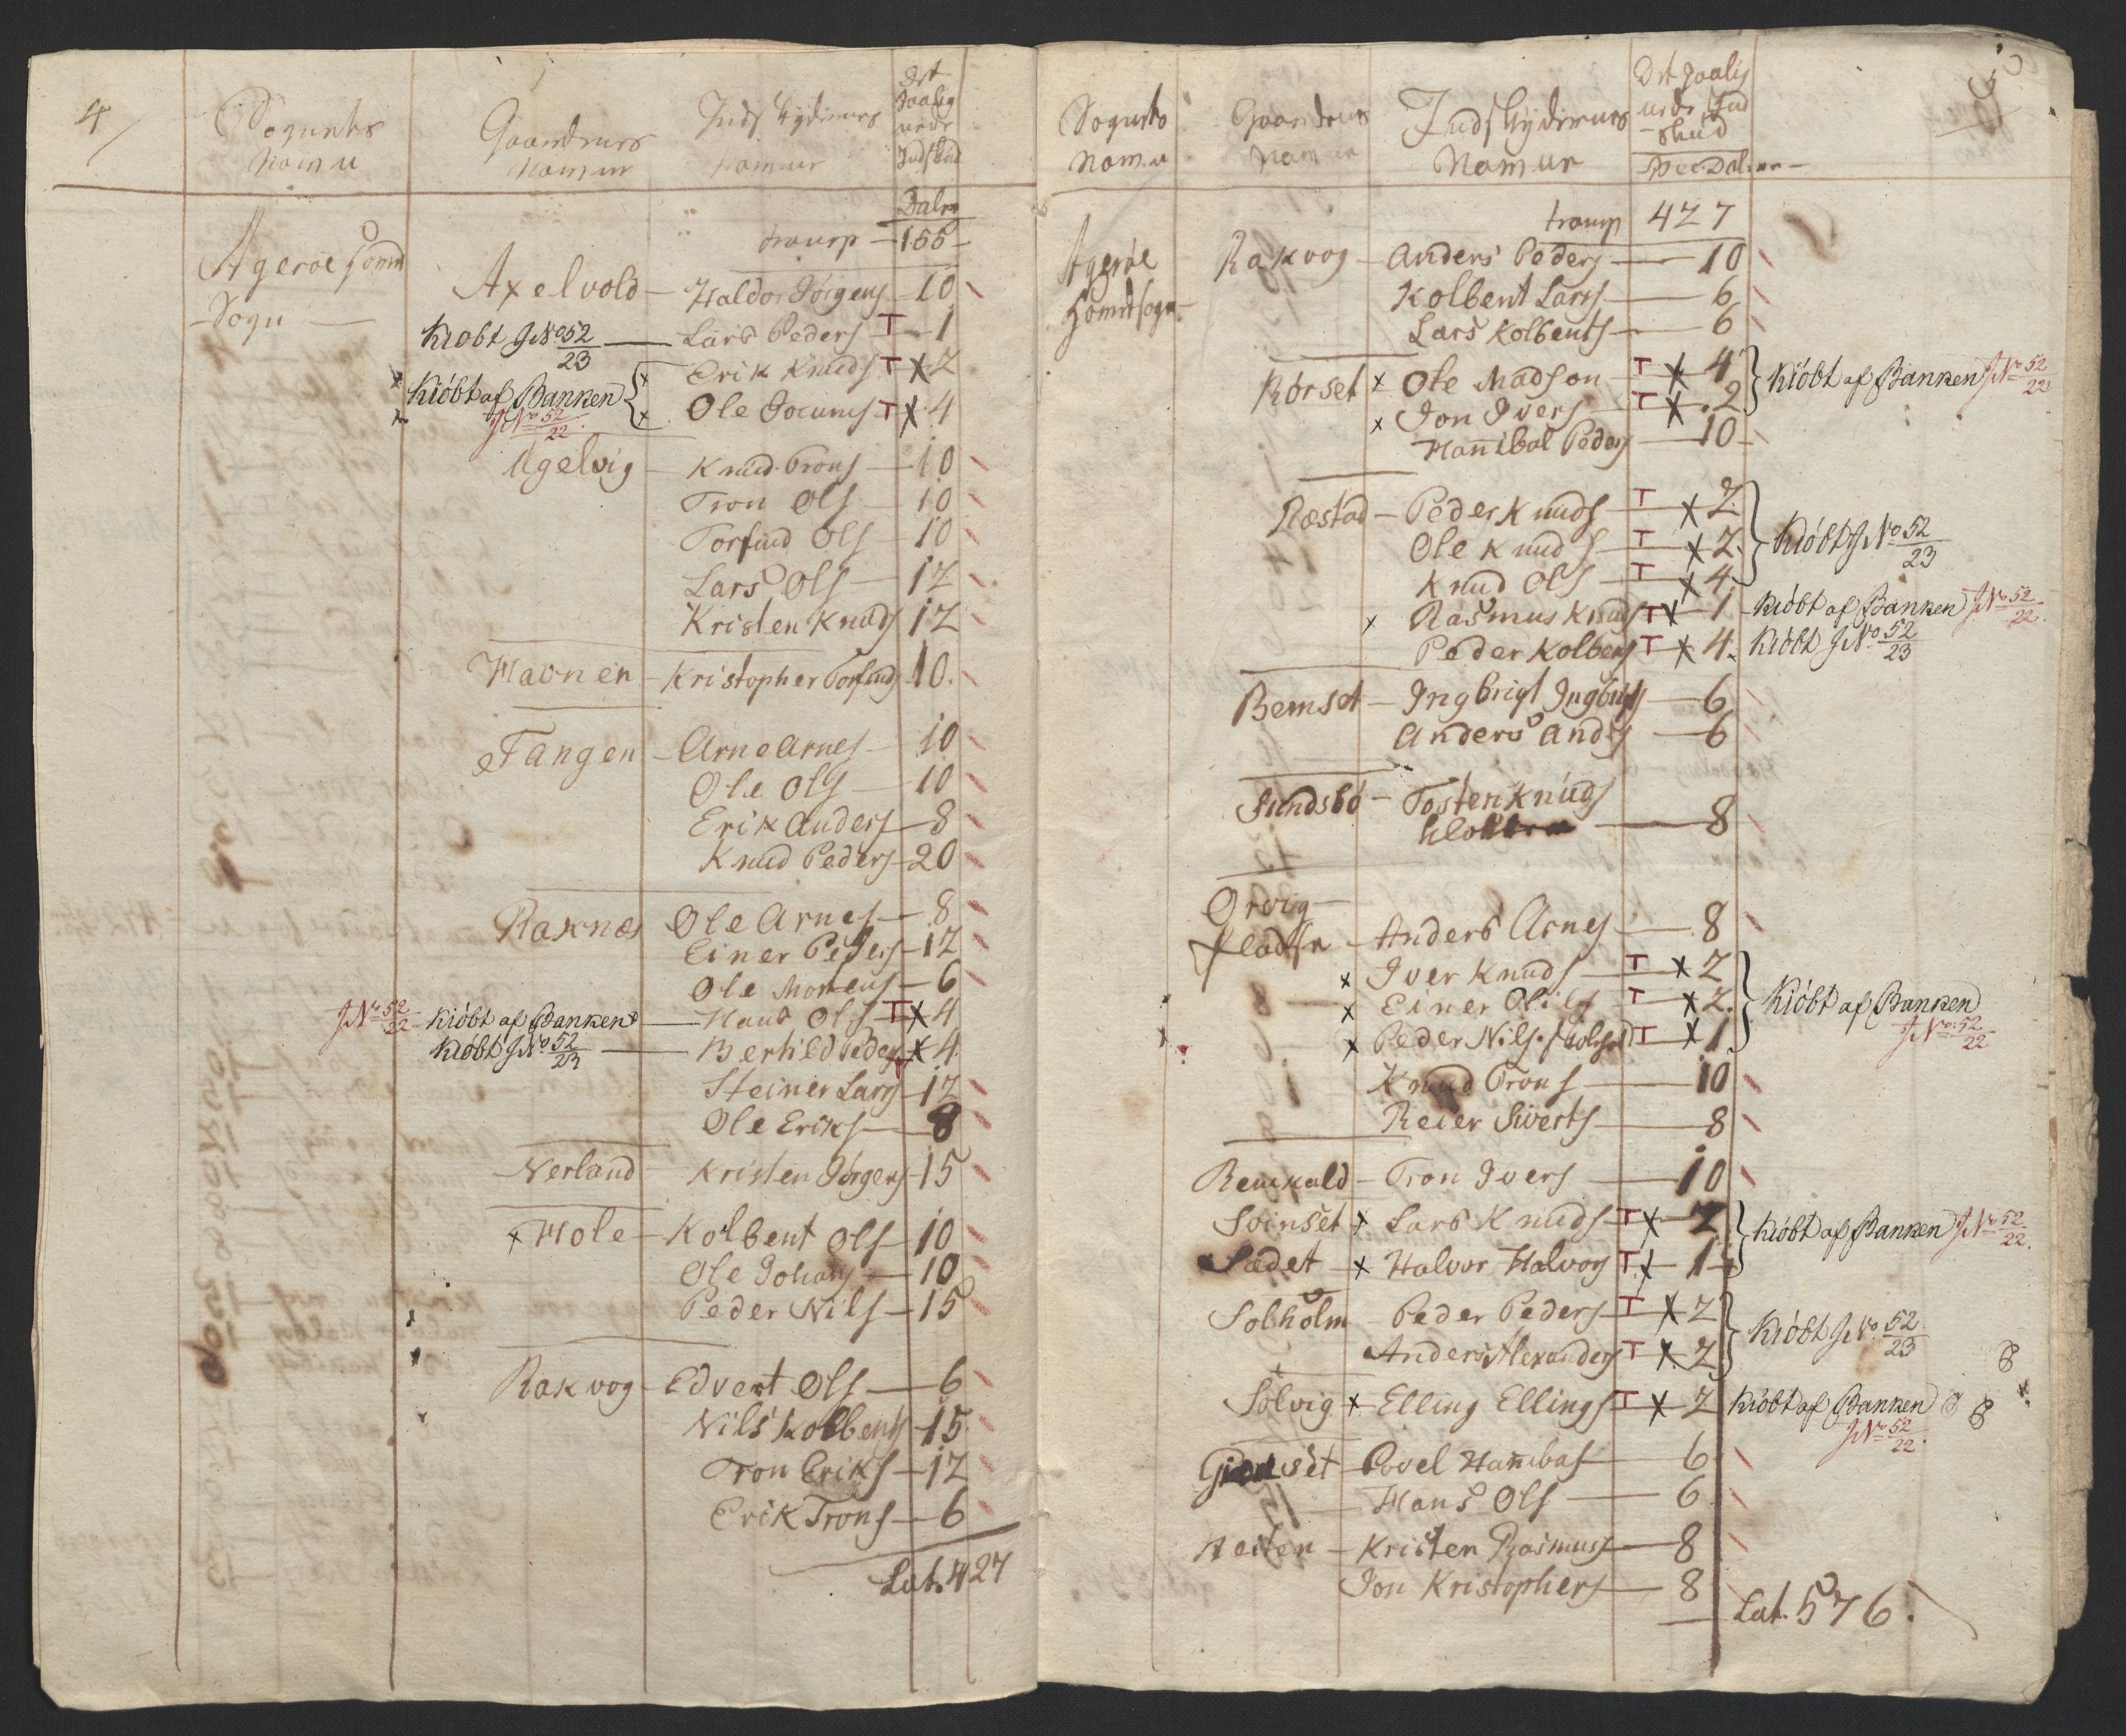 4
Sognets Gaardenes Indskyderens Det
Navne Navner Navner Indskud
Daler
transp 155
Ageröe
Sogn
Axelvold Haldor Jörgens 10
Kiöbt J No 52/23 Lars Peders T 1
Erik Knuds T x 2
Kiöbt af Banken { x Ole Jocums T x 4
J No 52/22
Ugelvig Knud Trons 10
Tron Ols 10
Torfind Ols 10
Lars Ols 12
Kristen Knuds 12
Havnen Kristopher Torfinds 10
Tangen Arne Arnes 10
Ole Ols 10
Erik Anders 8
Knud Peders 20
Raknæs Ole Arnes 8
Einer Peders 12
Ole Mortens 6
J No 52/22 Kiöbt af Banken x Hans Ols T x 4
Kiöbt J No 52/23 Berhild Peders T x 4
Steiner Lars 12
Ole Eriks 8
Nerland Kristen Jörgens 15
x Hole Kolbent Ols 10
Ole Johans 10
Peder Nils 15
Rakvog Edvert Ols 6
Nils Kolbents 15
Tron Eriks 12
Erik Trons 6
Lat. 427
5
Sognets Gaardenes Indskyderens
Navne Navner Navner Indskud
transp 427
Ageröe Rakvog Anders Peders 10
Kolbent Lars 6
Lars Kolbents 6
Rörset x Ole Madson T x 4 } Kiöbt af Banken J No 52/22
x Jon Ivers T x 2
Hannibal Peders 10
Ræstad Peder Knuds T x 2
Ole Knuds T x 2 } Kiöbt J No 52/23
Knud Ols T x 4
x Rasmus Knuds T x 1 Kiöbt af Banken J No 52/22
Peder Kolbens T x 4 Kiöbt J No 52/23
Bemset Ingbrigt Ingbrigts 6
Anders Anders 6
Sundsbö Tosten Knuds
8
Orvig
Pladsen Anders Arnes 8
x Iver Knuds T x 2
x Einer Ols T x 2 } Kiöbt af Banken
x Peder Nils T x 1 J No 52/22
Knud Trons 10
Reier Siverts 8
Remkald Tron Ivers 10
Svinset x Lars Knuds T x 2 } Kiöbt af Banken J No 52/22
Sædet x Halvor Halvors T x 1
Solholm Peder Peders T x 2 } Kiöbt J No 52/23
Anders Alexanders T x 2
Sölvig x Elling Ellings T x 2 Kiöbt af Banken
J No 52/22
Povel Hannibals 6
Hans Ols 6
Kristen Rasmuss 8
Jon Kristophers 8
Lat. 576.